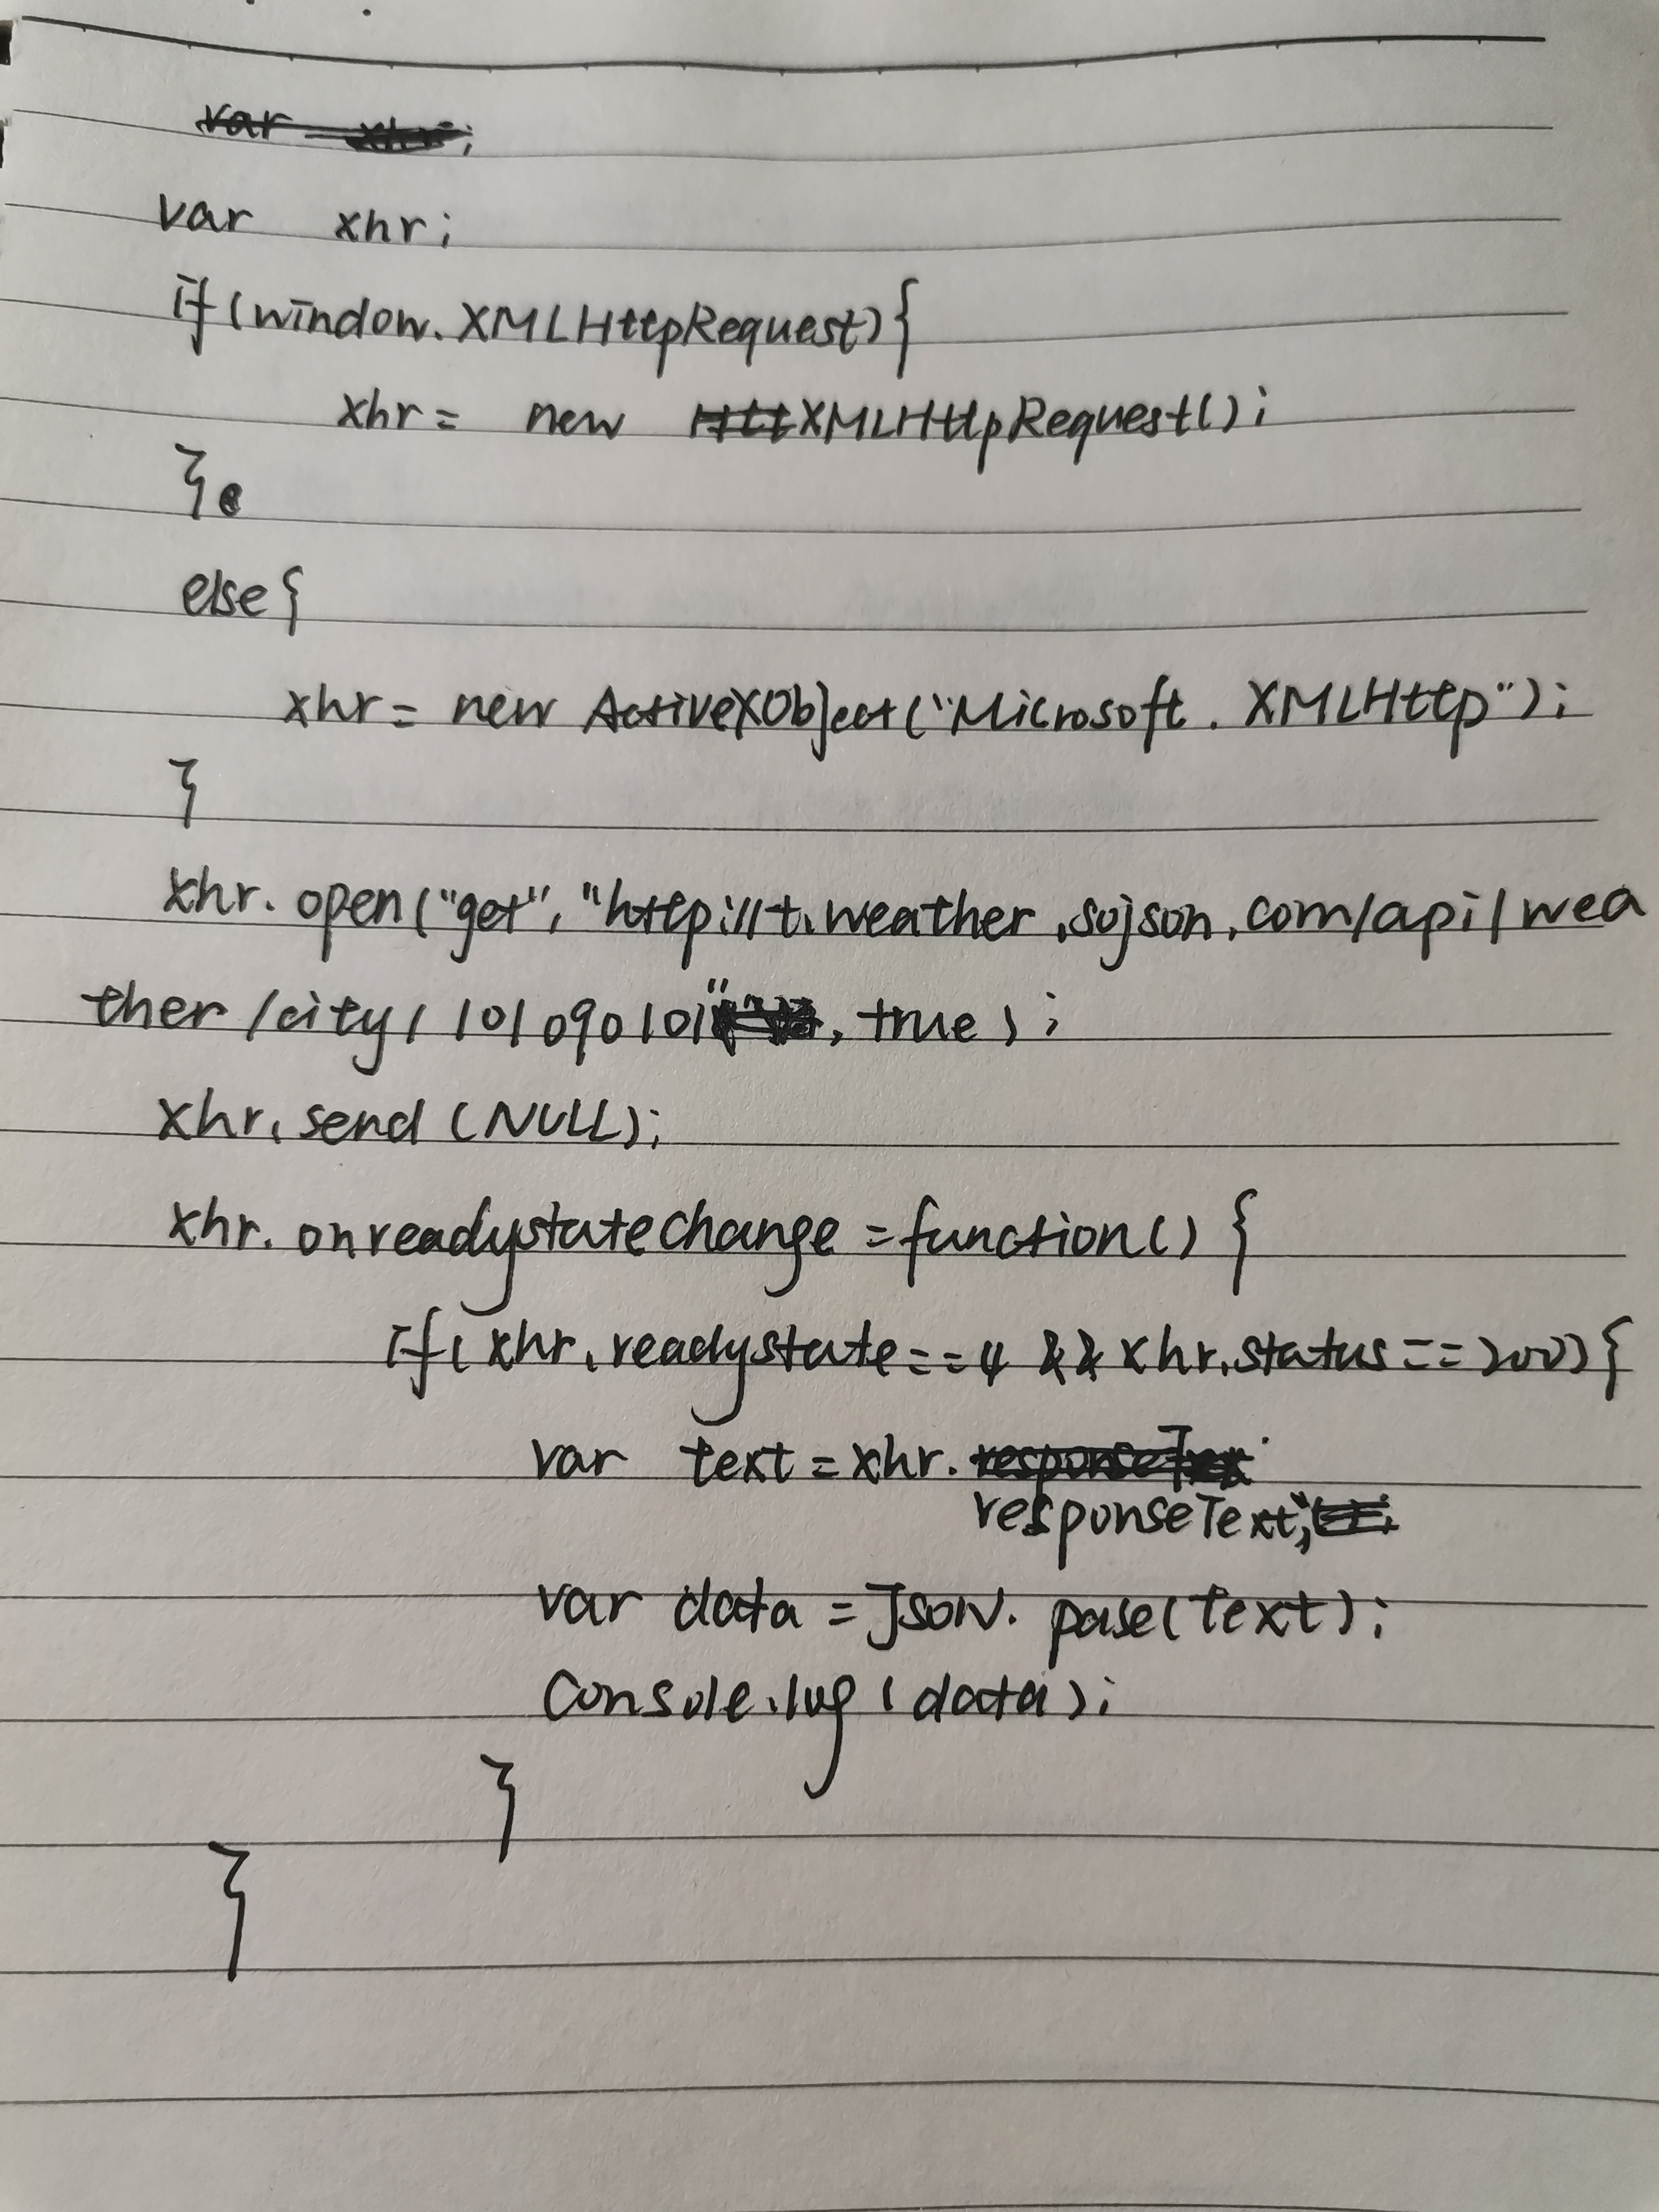 var xhr;
var xhr;
if(window.XMLHttpRequest){
xhr = new HttXMLHttpRequest();
}e
else{
xhr = new ActiveXObject("Microsoft.XMLHttp");
}
xhr.open("get", "http://t.weather.sojson.com/api/wea
ther/city/101090101", true);
xhr.send(NULL);
xhr.onreadystatechange = function() {
if(xhr.readystate==4 && xhr.status==200){
var text = xhr.
responseText;
var data = JSON.pase(text);
Console.log(data);
}
}